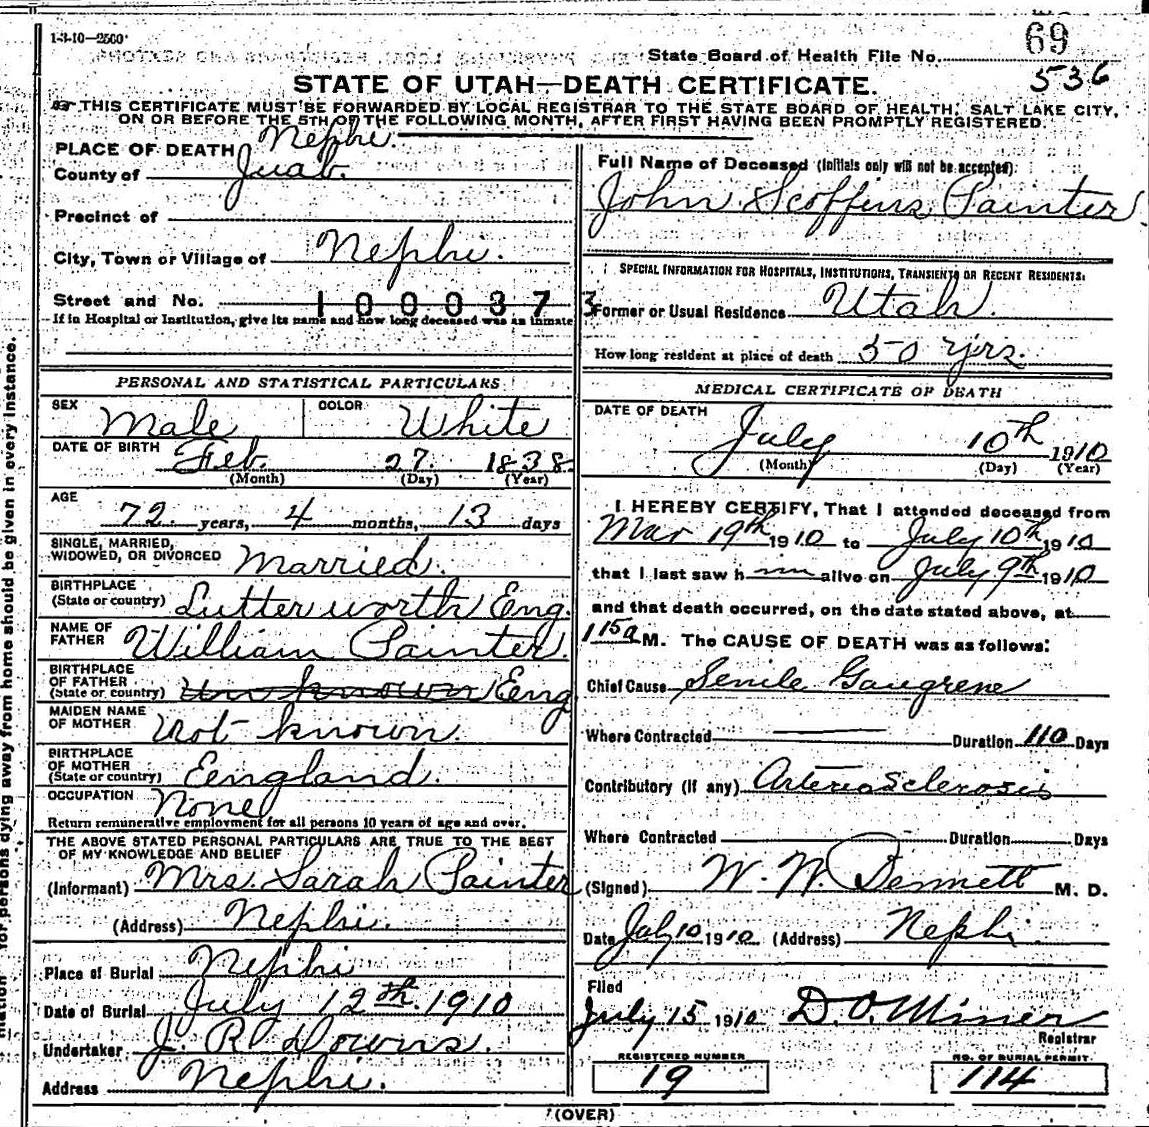 1-3-10—2500
State Board of Health File No. 69
536
STATE OF UTAH—DEATH CERTIFICATE.
THIS CERTIFICATE MUST BE FORWARDED BY LOCAL REGISTRAR TO THE STATE BOARD OF HEALTH, SALT LAKE CITY,
ON OR BEFORE THE 5TH OF THE FOLLOWING MONTH, AFTER FIRST HAVING BEEN PROMPTLY REGISTERED.
PLACE OF DEATH Nephi.
County of Juab.
Precinct of
City, Town or Village of Nephi.
Street and No. 1000373
If in Hospital or Institution, give its name and how long deceased was an inmate
Full Name of Deceased (Initials only will not be accepted)
John Scoffins Painter
SPECIAL INFORMATION FOR HOSPITALS, INSTITUTIONS, TRANSIENTS OR RECENT RESIDENTS.
Former or Usual Residence Utah.
How long resident at place of death 50 yrs.
PERSONAL AND STATISTICAL PARTICULARS
SEX Male COLOR White
DATE OF BIRTH Feb. 27. 1838
(Month) (Day) (Year)
AGE
72 years, 4 months, 13 days
SINGLE, MARRIED,
WIDOWED, OR DIVORCED Married.
BIRTHPLACE
(State or country) Lutterworth Eng.
NAME OF
FATHER William Painter.
BIRTHPLACE
OF FATHER
(State or country) Unknown Eng
MAIDEN NAME
OF MOTHER Not known.
BIRTHPLACE
OF MOTHER
(State or country) Eengland.
OCCUPATION None
Return remunerative employment for all persons 10 years of age and over.
THE ABOVE STATED PERSONAL PARTICULARS ARE TRUE TO THE BEST
OF MY KNOWLEDGE AND BELIEF
(Informant) Mrs. Sarah Painter
(Address) Nephi.
Place of Burial Nephi
Date of Burial July 12th. 1910
Undertaker J. R. Downs.
Address Nephi.
MEDICAL CERTIFICATE OF DEATH
DATE OF DEATH
July 10th 1910
(Month) (Day) (Year)
I HEREBY CERTIFY, That I attended deceased from
Mar 19th 1910 to July 10th 1910
that I last saw h im alive on July 9th 1910
and that death occurred, on the date stated above, at
1 15 a M. The CAUSE OF DEATH was as follows:
Chief Cause Senile Gangrene
Where Contracted Duration 110 Days
Contributory (if any) Arteriosclerosis
Where Contracted Duration Days
(Signed) W. W. Bennett M. D.
Date July 10 1910 (Address) Nephi.
Filed
July 15 1910 D. O. Miner
Registrar
REGISTERED NUMBER
19
NO. OF BURIAL PERMIT.
114
(OVER)
for persons dying away from home should be given in every instance.